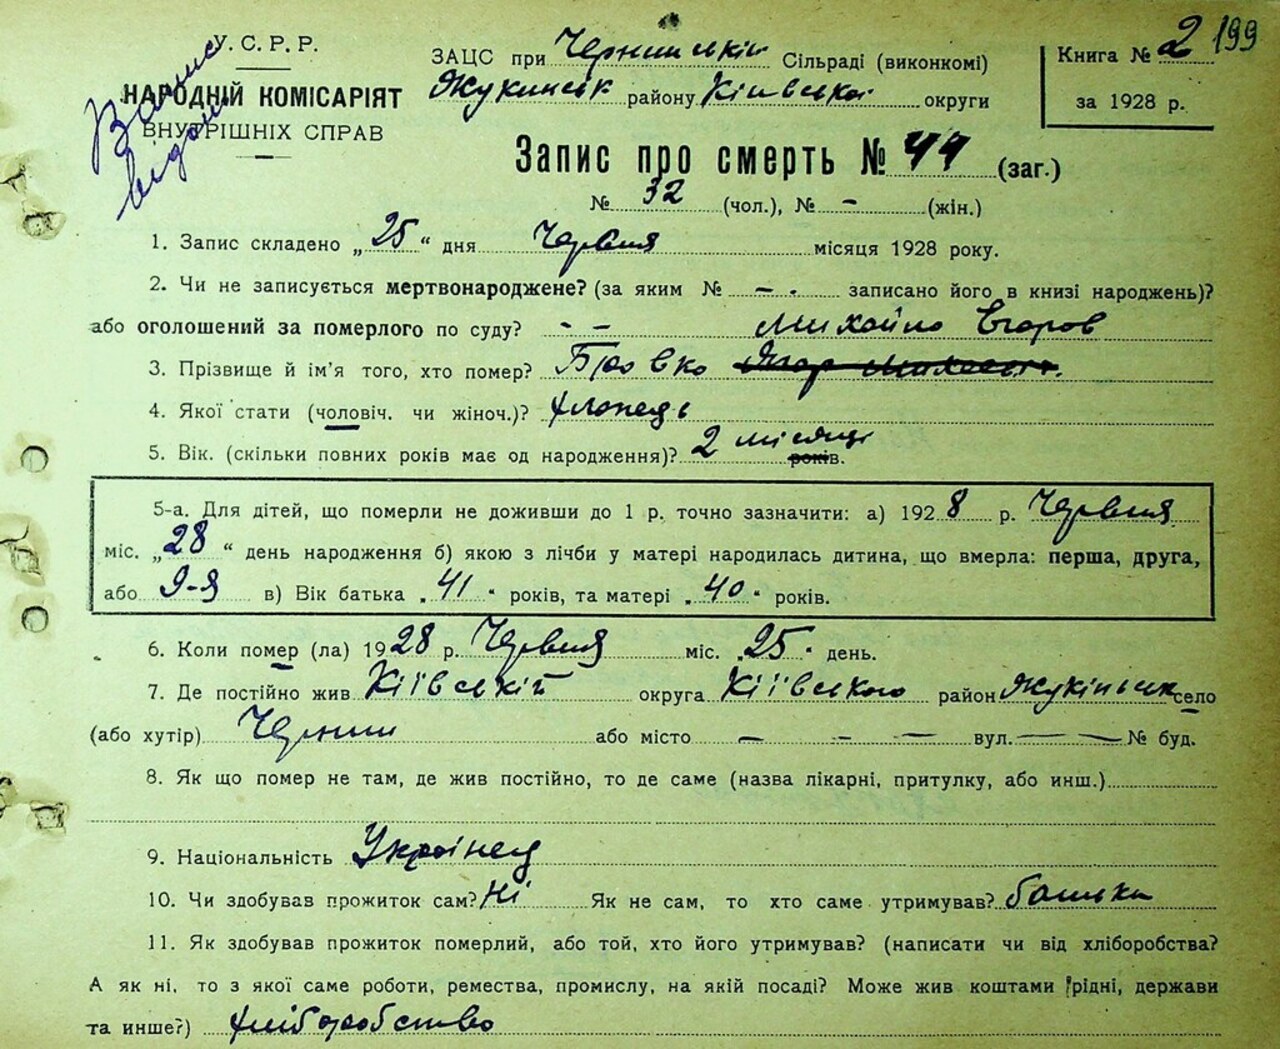 199
У. С. Р. Р.
НАРОДНІЙ КОМІСАРІЯТ
ВНУТРІШНІХ СПРАВ
ЗАЦС при Чернинській Сільраді (виконкомі)
Жукинськ району Київської округи
Книга № 2
за 1928 р.
Запис про смерть № 44 (заг.)
№ 32 (чол.), № - (жін.)
1. Запис складено „25“ дня Червня місяця 1928 року.
2. Чи не записується мертвонароджене? (за яким № - . записано його в книзі народжень)?
або оголошений за померлого по суду? - - Михайло Єгоров
3. Прізвище й ім'я того, хто помер? Бровко
4. Якої стати (чоловіч. чи жіноч.)? хлопець
5. Вік. (скільки повних років має од народження)? 2 місяці років.
5-а. Для дітей, що померли не доживши до 1 р. точно зазначити: а) 1928 р. Червня
міс. „28“ день народження б) якою з лічби у матері народилась дитина, що вмерла: перша, друга,
або 9-я в) Вік батька „41“ років, та матері „40“ років.
6. Коли помер (ла) 1928 р. Червня міс. „25“ день.
7. Де постійно жив Київській округа Київського район Жукінськ село
(або хутір) Чернин або місто — - — вул. — — № буд.
8. Як що помер не там, де жив постійно, то де саме (назва лікарні, притулку, або инш.)
9. Національність Українец
10. Чи здобував прожиток сам? Ні Як не сам, то хто саме утримував? батьки
11. Як здобував прожиток померлий, або той, хто його утримував? (написати чи від хліборобства?
А як ні, то з якої саме роботи, ремества, промислу, на якій посаді? Може жив коштами рідні, держави
та инше?) хліборобство